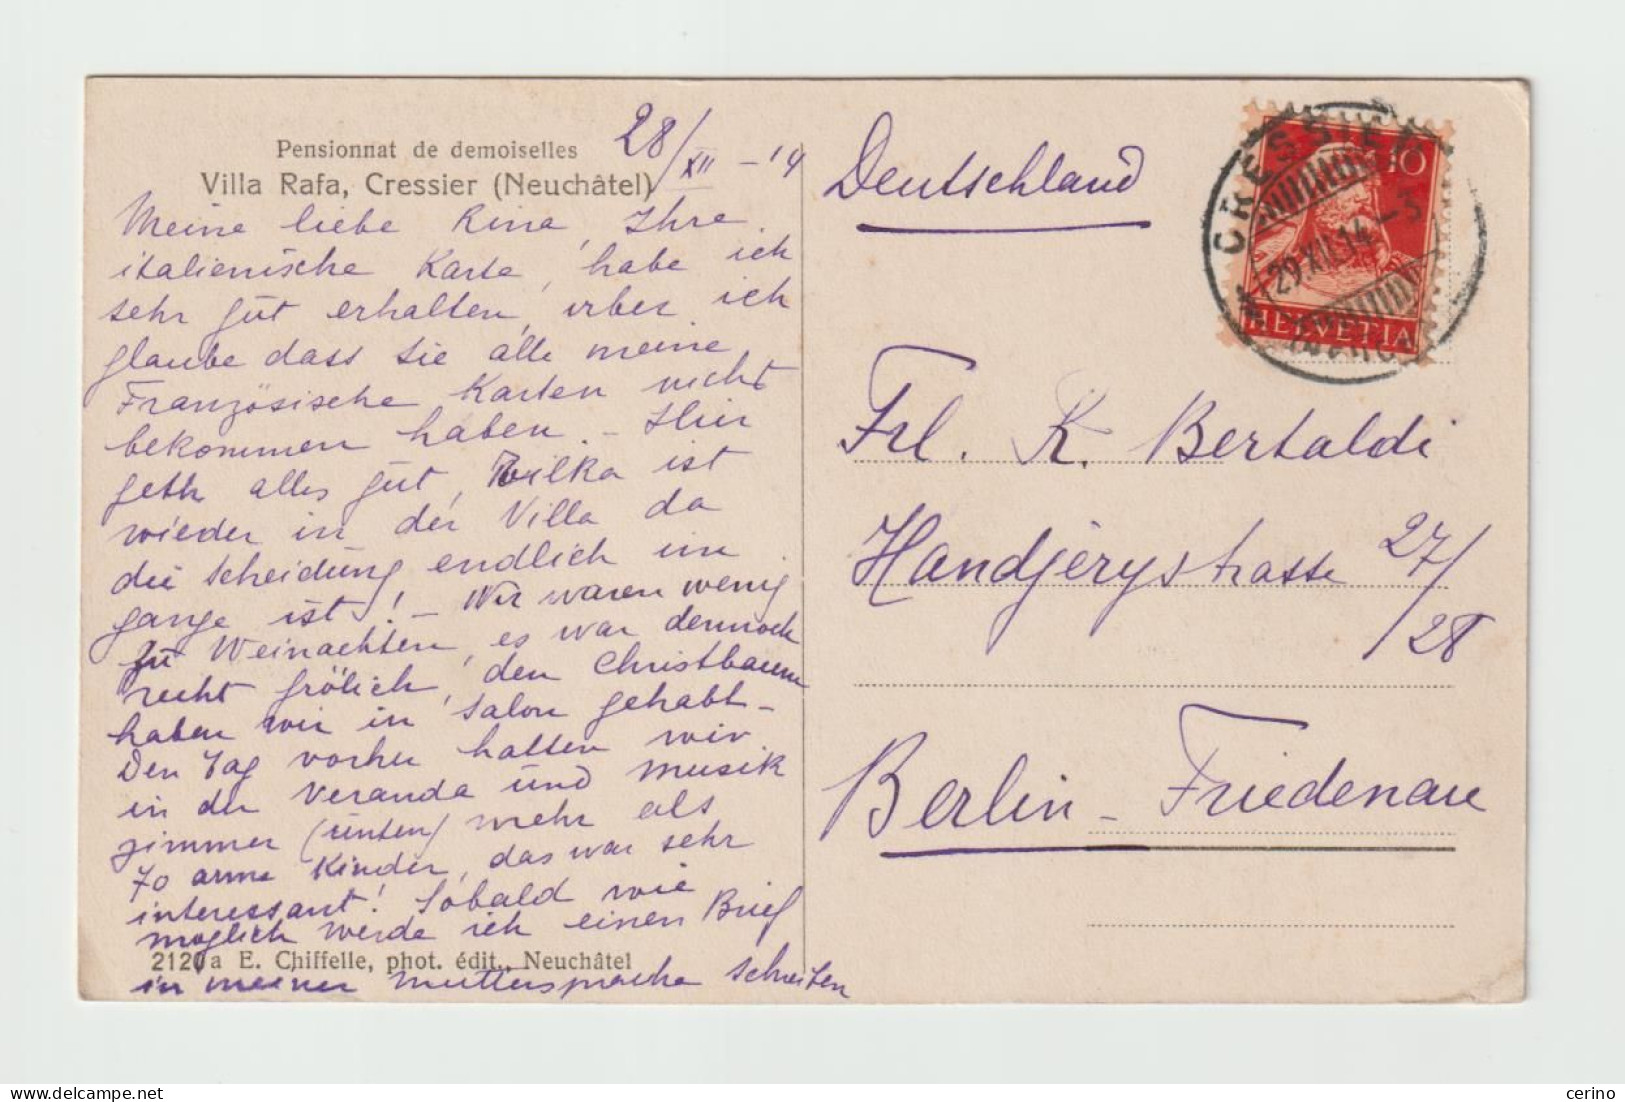 Pensionnat de demoiselles
Villa Rafa, Cressier (Neuchâtel)
28/XII - 14
Meine liebe Rina, Ihre
italienische Karte, habe ich
sehr gut erhalten, aber ich
glaube dass Sie alle meine
Französische Karten nicht
bekommen haben. - Hier
geth alles gut, Milka ist
wieder in der Villa da
die Scheidung endlich im
gange ist! - Wir waren wenig
zu Weinachten, es war dennoch
recht frölich, den Christbaum
haben wir in Salon gehabt -
Den Tag vorher hatten wir
in der Veranda und Musik
zimmer (unten) mehr als
70 arme Kinder, das war sehr
interessant! Sobald wie
möglich werde ich einen Brief
in meiner Muttersprache schreiben
2120a E. Chiffelle, phot. édit., Neuchâtel
Deutschland
CRESSIER
29.XII.14.-3
10
HELVETIA
Frl. K. Bertaldi
Handjerystrasse 27/
/28
Berlin - Friedenau
cerino